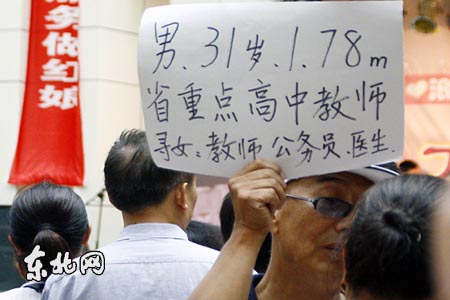 男、31岁、1.78m
省重点高中教师
寻女：教师 公务员、医生.
务做红娘
浪
东北网